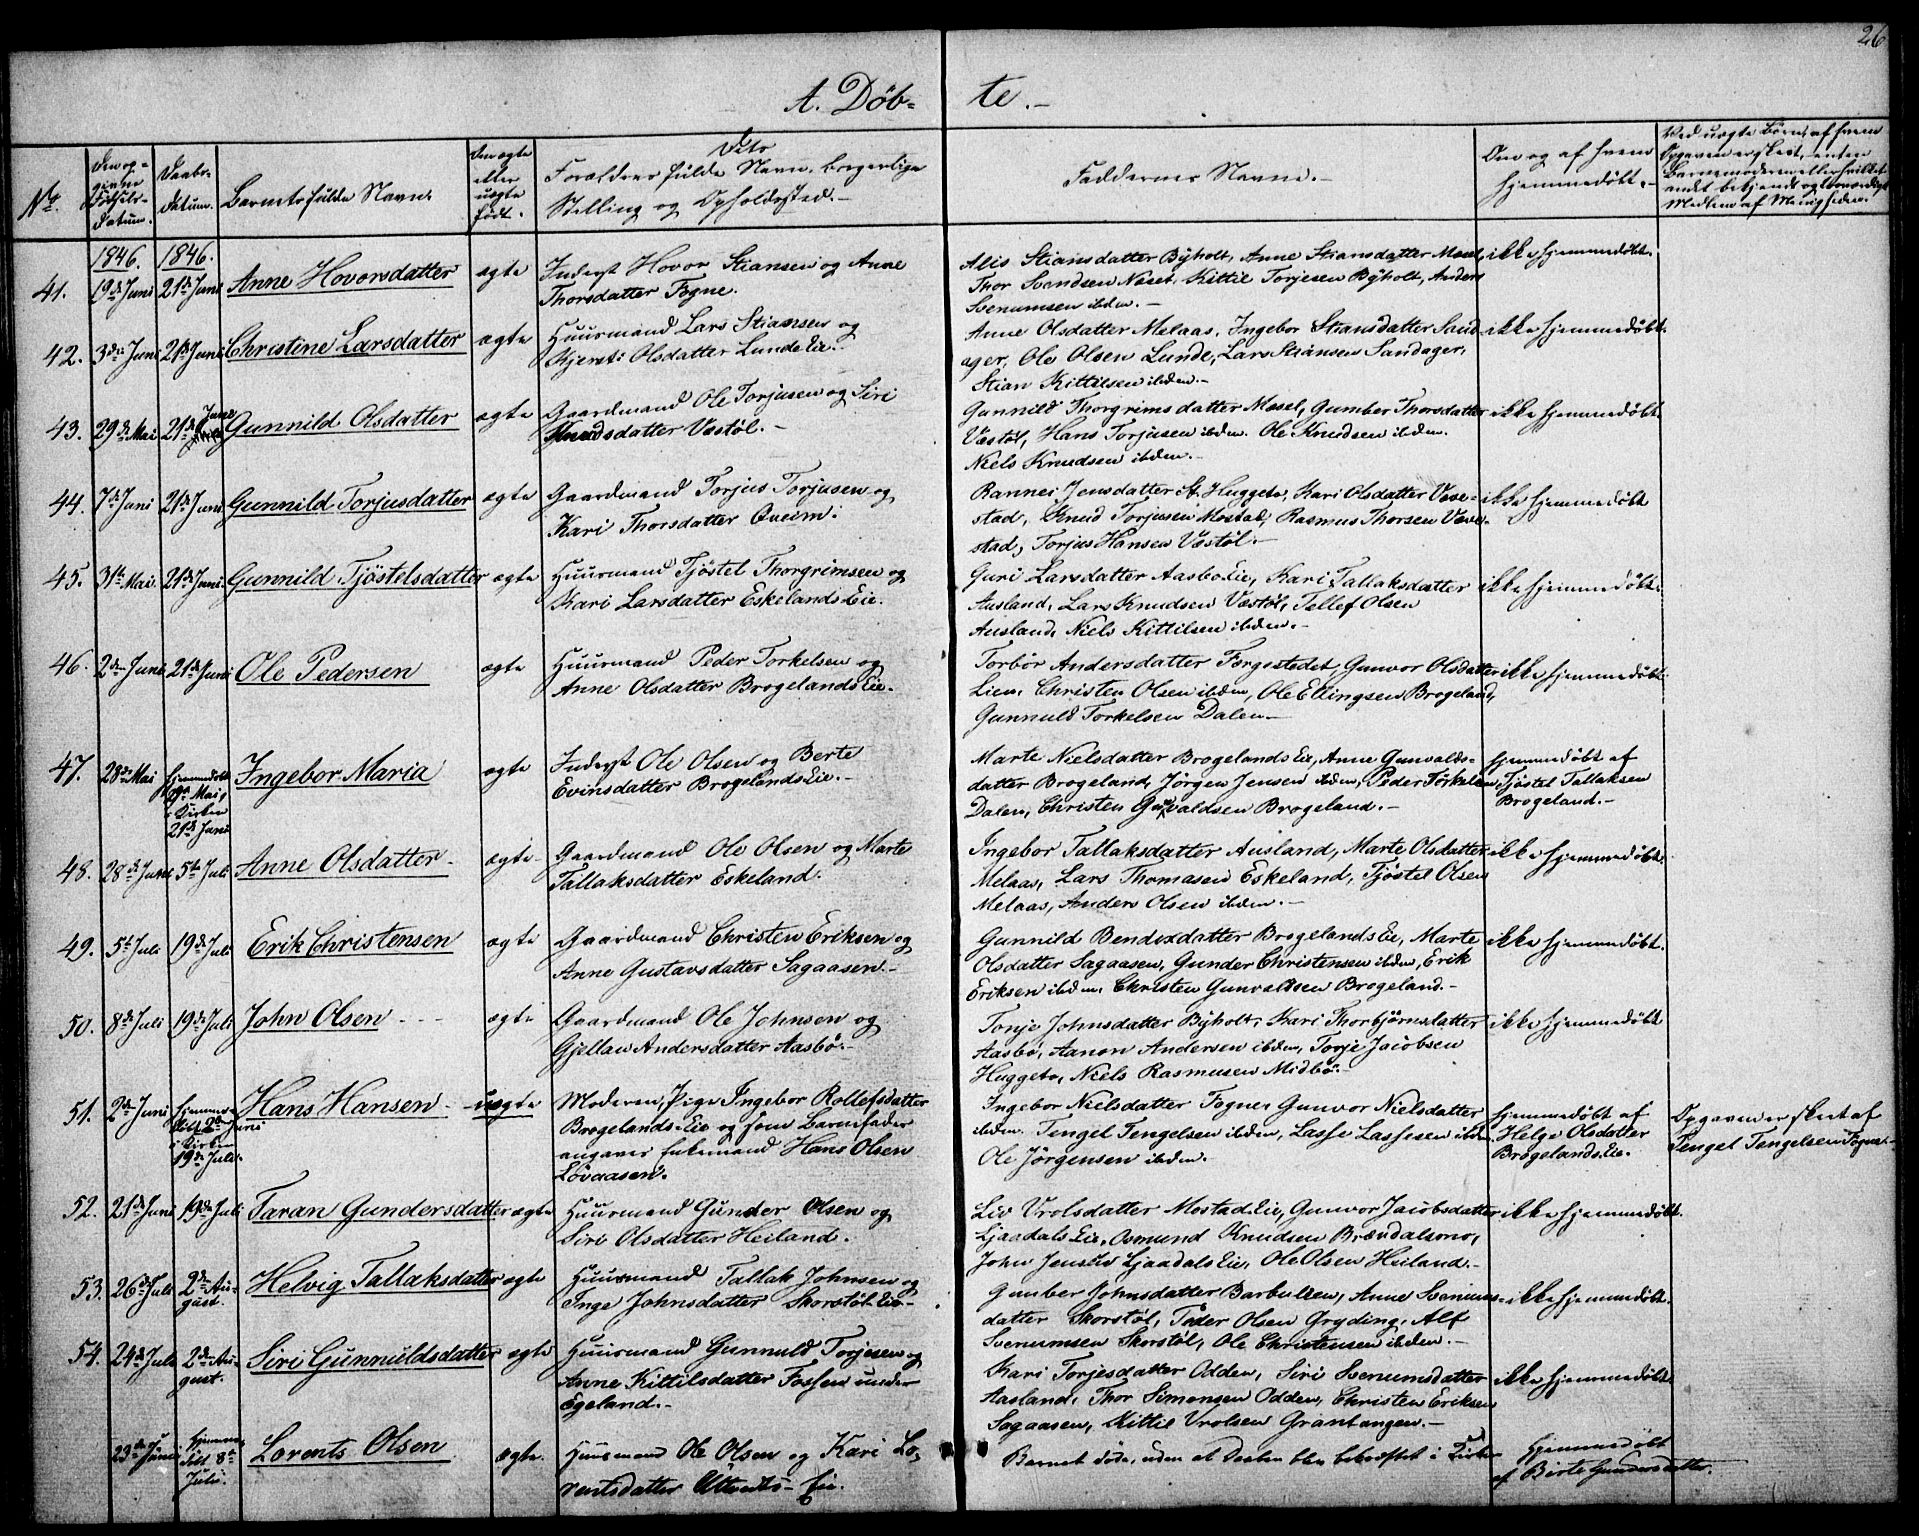 26
A. Døb- te.-
No.
Den opgivne Fødsels-datum.
Daabs-datum.
Barnets fulde Navn.
Om ægte eller uægte født.
Forældres fulde Navn, borgerlige
Stilling og Opholdssted.-
Faddernes Navne.-
Om og af hvem
hjemmedøbt.-
Ved uægte Børn, af hvem
Opgaven er skeet, enten
Barnemoderen eller hvilket
andet bekjendt og troværdigt
Medlem af Menigheden.
1846. 1846.
41. 19de Juni 21de Juni Anne Hovorsdatter ægte Inderst Hovor Stiansen og Anne
Thorsdatter Fogne.
Alis Stiansdatter Byholt, Anne Stiansdatter Mosel, ikke hjemmedøbt.
Thor Svendsen Næset, Kittil Torjesen Byholt, Anders
Svenumsen ibdm.-
42. 3die Juni 21de Juni Christine Larsdatter ægte Huusmand Lars Stiansen og
Gjerets Olsdatter Lunde Eie.-
Anne Olsdatter Melaas, Ingebor Stiansdatter Sand- ikke hjemmedøbt.
ager, Ole Olsen Lunde, Lars Stiansen Sandager,
Stian Kittilsen ibdm.-
43. 29de Mai 21de Juni Gunnild Olsdatter ægte Gaardmand Ole Torjusen og Siri
Knudsdatter Væstøl.-
Gunnild Thorgrimsdatter Mosel, Gumber Thorsdatter ikke hjemmedøbt.
Væstøl, Hans Torjusen ibdm. Ole Knudsen ibdm.
Niels Knudsen ibdm.-
44. 7de Juni 21de Juni Gunnild Torjusdatter ægte Gaardmand Torjus Torjusen og
Kari Thorsdatter Qveim.
Rannei Jensdatter St. Huggeto, Kari Olsdatter Veve- ikke hjemmedøbt
stad, Knud Torjusen Mostad, Rasmus Thorsen Veve-
stad, Torjus Hansen Væstøl.-
45. 31te Mai 21de Juni Gunnild Tjöstelsdatter ægte Huusmand Tjöstel Thorgrimsen og
Kari Larsdatter Eskelands Eie.
Guri Larsdatter Aasbo Eie, Kari Tallaksdatter ikke hjemmedøbt.
Ausland, Lars Knudsen Væstöl, Tellef Olsen
Ausland, Niels Kittilsen ibdm.-
46. 2den Juni 21de Juni Ole Pedersen ægte Huusmand Peder Torkelsen og
Anne Olsdatter Brogelands Eie.
Torbör Andersdatter Færgestedet, Gunvor Olsdatter ikke hjemmedøbt.
Lien, Christen Olsen ibdm, Ole Ellingsen Brogeland,
Gunnuld Torkelsen Dalen-
47. 28de Mai hjemmedøbt Mai, i Kirken 21de Juni Ingebor Maria ægte Inderst Ole Olsen og Berte
Evinsdatter Brogelands Eie.-
Marte Nielsdatter Brogelands Eie, Anne Gunvalds- hjemmedøbt af
datter Brogeland, Jörgen Jensen ibdm, Peder Torkelsen Tjöstel Tallaksen
Dalen, Christen Gunvaldsen Brogeland.- Brogeland.-
48. 28de Juni 5te Juli Anne Olsdatter ægte Gaardmand Ole Olsen og Marte
Tallaksdatter Eskeland.
Ingebor Tallaksdatter Ausland, Marte Olsdatter ikke hjemmedøbt.
Melaas, Lars Thomasen Eskeland, Tjöstel Olsen
Melaas, Anders Olsen ibdm.-
49. 5te Juli 19de Juli Erik Christensen ægte Gaardmand Christen Eriksen og
Anne Gustavsdatter Sagaasen.-
Gunnild Bendixdatter Brogelands Eie, Marte ikke hjemmedøbt.
Olsdatter Sagaasen, Gunder Christensen ibdm, Erik
Eriksen ibdm. Christen Gunvaldsen Brogeland.-
50. 8de Juli 19de Juli John Olsen ægte Gaardmand Ole Johnsen og
Gjellau Andersdatter Aasbö.-
Tonje Johnsdatter Byholt, Kari Thorbjörnsdatter ikke hjemmedøbt
Aasbö, Aanon Andersen ibdm, Torje Jacobsen
Huggeto, Niels Rasmusen Midbö.-
51. 2de Juni hjemmedøbt 2de Juni i Kirken 19de Juli. Hans Hansen uægte Moderen, Pige Ingebor Rollefsdatter
Brogelands Eie og som Barnefader
angaves Enkemand Hans Olsen
Lövaasen.
Ingebor Nielsdatter Fogne, Gunvor Nielsdatter hjemmedøbt af
ibdm. Tengel Tengelsen ibdm, Lasse Lassesen ibdm. Helge Olsdatter
Ole Jörgensen ibdm. Brogelands Eie.
Opgaven er skeet af
Tengel Tengelsen Fogne.-
52. 21de Juni 19de Juli Taran Gundersdatter ægte Huusmand Gunder Olsen og
Siri Olsdatter Heiland.
Liv Vrolsdatter Mostad Eie, Gunvor Jacobsdatter ikke hjemmedøbt.
Ljaadals Eie, Osmund Knudsen Brændalsmo,
John Jensen Ljaadals Eie, Ole Olsen Heiland.-
53. 26de Juli 2den August. Helvig Tallaksdatter ægte Huusmand Tallak Johnsen og
Inge Johnsdatter Skorstöl Eie-
Gumber Johnsdatter Barbulien, Anne Svenums- ikke hjemmedøbt.
datter Skorstöl, Tåder Olsen Gryding, Alf
Svenumsen Skorstöl, Ole Christensen ibdm.-
54. 24de Juli 2den August. Siri Gunnuldsdatter ægte Huusmand Gunnuld Torjesen og
Anne Kittilsdatter Fossen under
Egeland.-
Kari Torjesdatter Odden, Siri Svenumsdatter ikke hjemmedøbt.
Aasland, Thor Simonsen Odden, Christen Eriksen
Sagaasen, Kittil Vrolsen Grantangen.-
23de Juni hjemmedøbt 8de Juli. Lorents Olsen ægte. Huusmand Ole Olsen og Kari Lo-
rentsdatter Eie.
Barnet døde, uden at Daaben blev bekræftet i Kirken Hjemmedøbt
af Birte Gundersdatter.